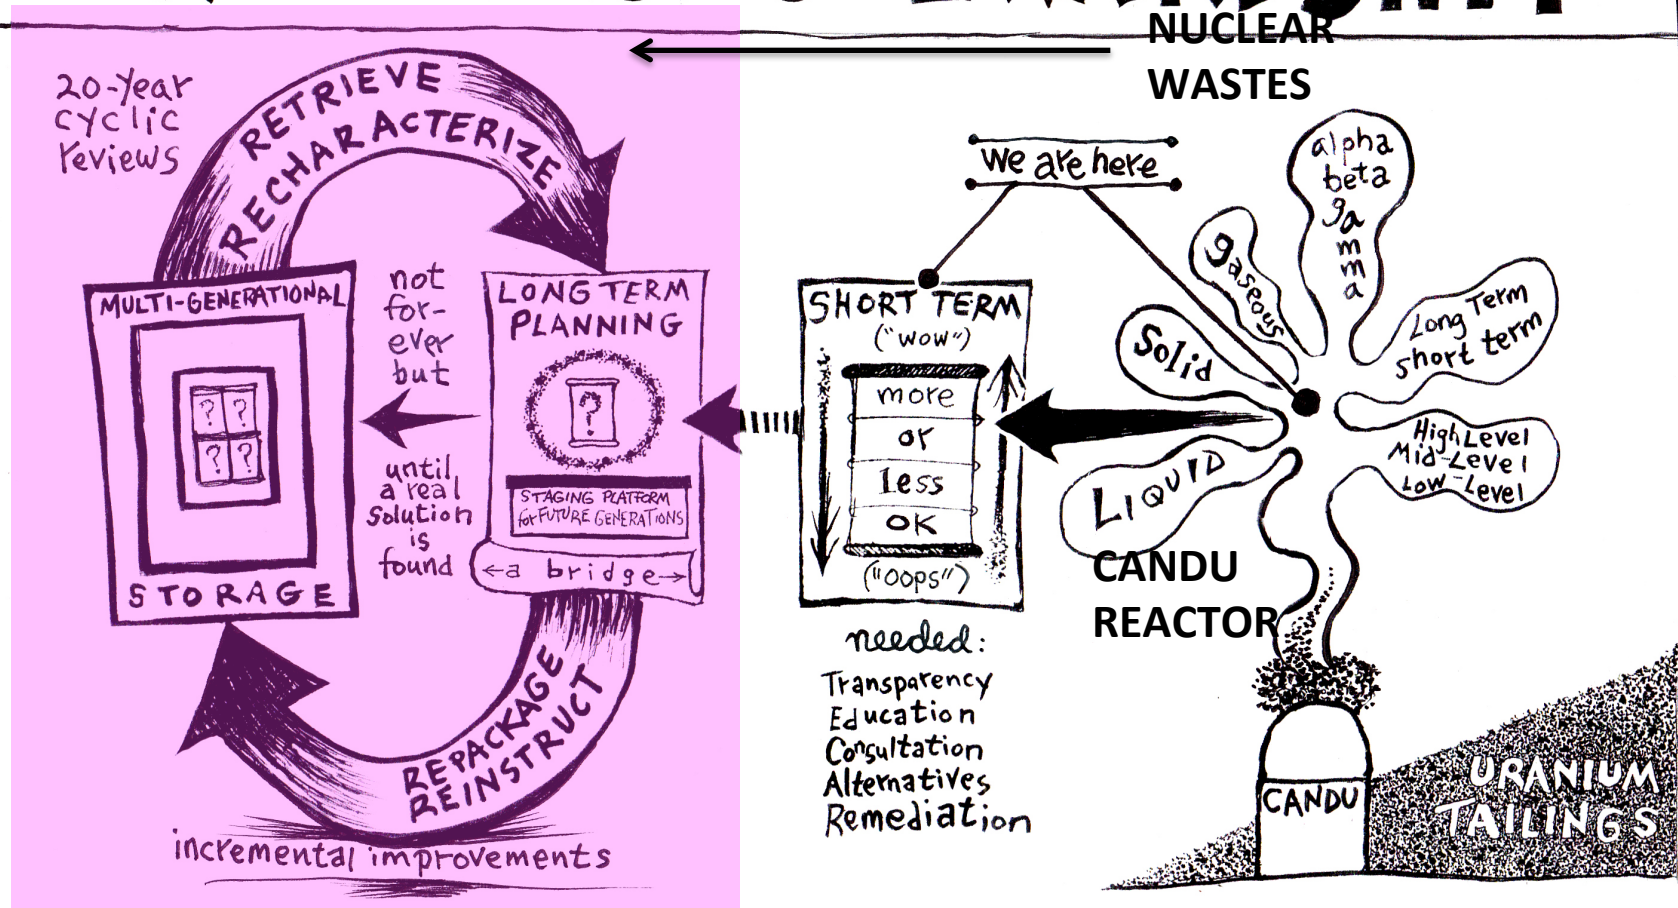 NUCLEAR
WASTES
20-year
cyclic
reviews
RETRIEVE
RECHARACTERIZE
MULTI-GENERATIONAL
? ?
? ?
STORAGE
not
for-
ever
but
until
a real
solution
is
found
LONG TERM
PLANNING
?
STAGING PLATFORM
for FUTURE GENERATIONS
a bridge
REPACKAGE
REINSTRUCT
incremental improvements
we are here
SHORT TERM
("WOW")
more
or
Less
OK
("OOPS")
needed:
Transparency
Education
Consultation
Alternatives
Remediation
alpha
beta
gamma
gaseous
Solid
LIQUID
Long Term
short term
High Level
Mid-Level
Low-Level
CANDU
REACTOR
CANDU
URANIUM
TAILINGS